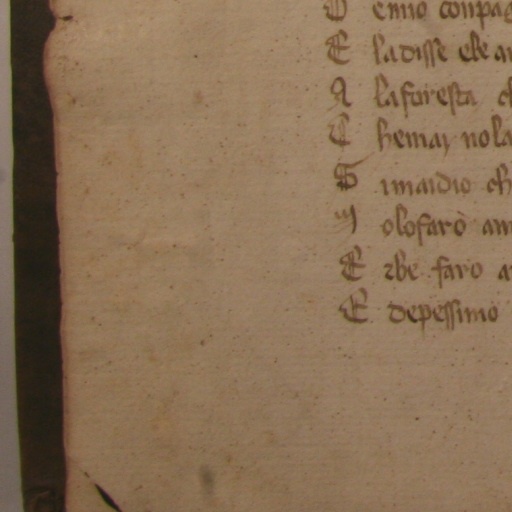 D emio conpag
E la disse ebe a
A la foresta ch
C he mai no la
S imaidio ch
M olo faro am
E rbe faro a
E de pessimo